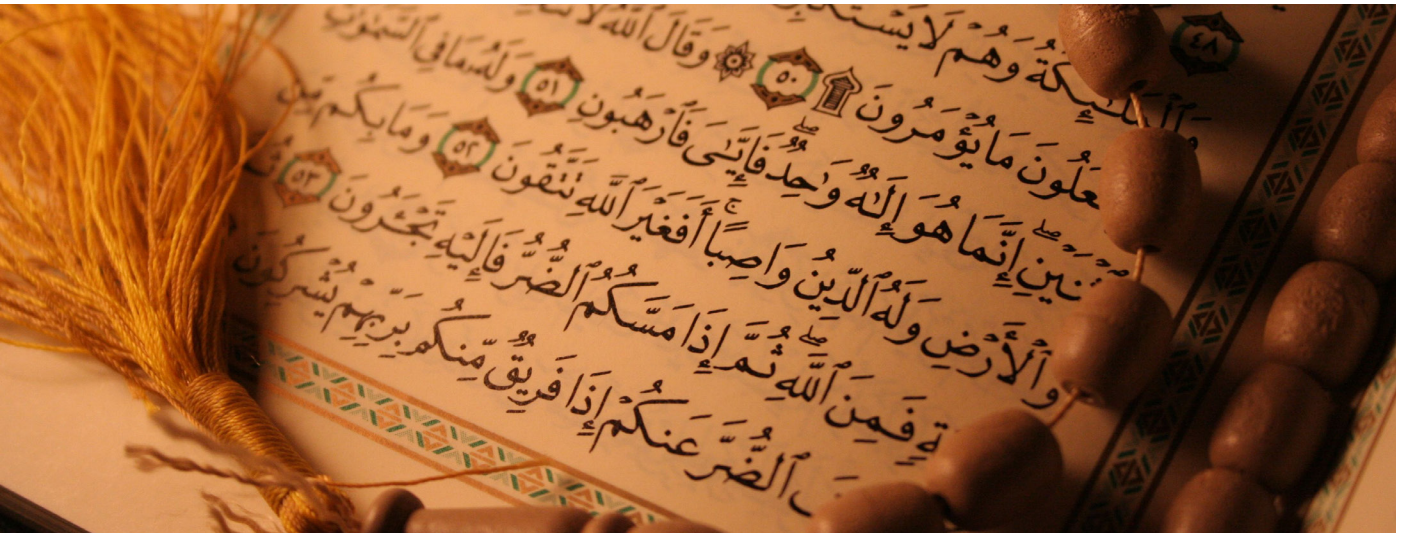 ٤٨
وَٱلْمَلَٰٓئِكَةُ وَهُمْ لَا
مَا يُؤْمَرُونَ ۩ ٥٠ ۞ وَقَالَ ٱللَّهُ لَا
إِنَّمَا هُوَ إِلَٰهٌ وَٰحِدٌ فَإِيَّٰىَ فَٱرْهَبُونِ ٥١ وَلَهُۥ مَا فِى ٱلسَّمَٰوَٰتِ
وَٱلْأَرْضِ وَلَهُ ٱلدِّينُ وَاصِبًا ۚ أَفَغَيْرَ ٱللَّهِ تَتَّقُونَ ٥٢ وَمَا بِكُم مِّن
فَمِنَ ٱللَّهِ ۖ ثُمَّ إِذَا مَسَّكُمُ ٱلضُّرُّ فَإِلَيْهِ تَجْـَٔرُونَ ٥٣
ٱلضُّرَّ عَنكُمْ إِذَا فَرِيقٌ مِّنكُم بِرَبِّهِمْ يُشْرِكُونَ